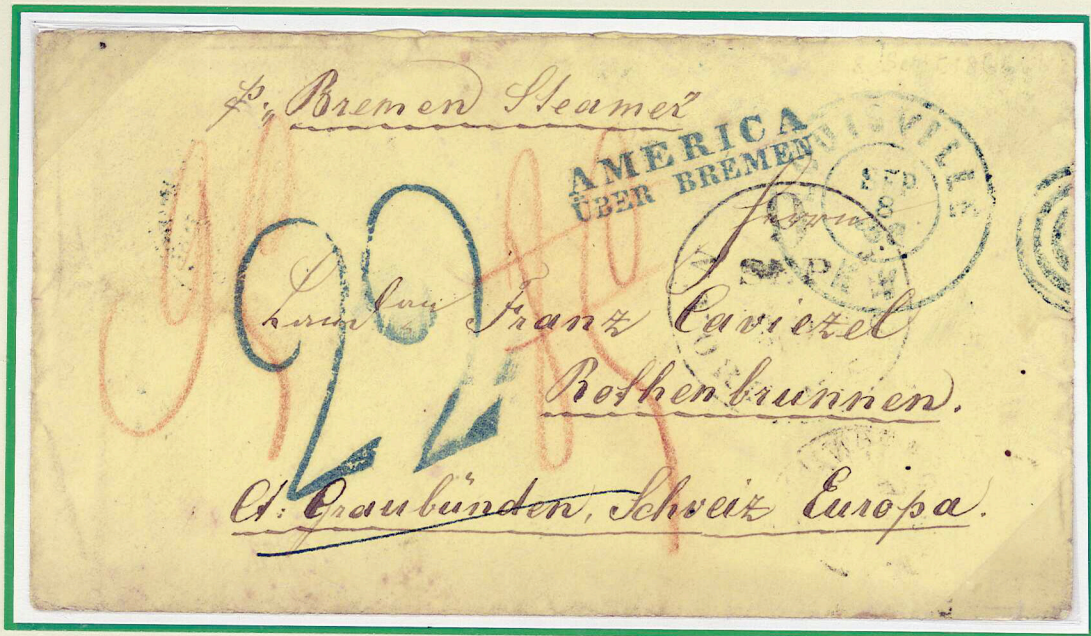 pr. Bremen Steamer
AMERICA
ÜBER BREMEN
LOUISVILLE
SEP
8
Herrn
SEP
22
Franz Caviezel
Rothenbrunnen.
Ct: Graubünden, Schweiz Europa.